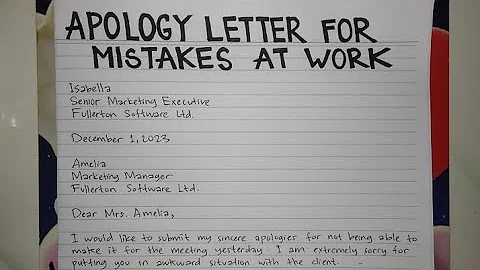 APOLOGY LETTER FOR
MISTAKES AT WORK
Isabella
Senior Marketing Executive
Fullerton Software Ltd.
December 1, 2023
Amelia
Marketing Manager
Fullerton Software Ltd.
Dear Mrs. Amelia,
I would like to submit my sincere apologies for not being able to
make it for the meeting yesterday. I am extremely sorry for
putting you in awkward situation with the client.